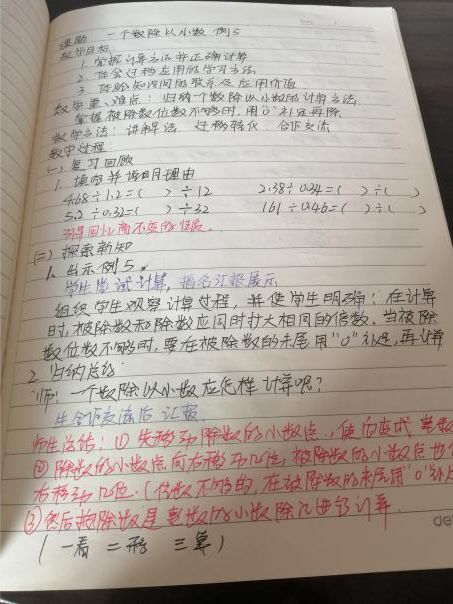 课题 一个数除以小数 例5
教学目标:
1. 掌握计算方法并正确计算
2. 体会迁移应用的学习方法
3. 体验知识间的联系及应用价值
教学重、难点: 归纳一个数除以小数的计算方法
掌握被除数位数不够时,用"0"补足再除
教学方法: 讲解法 迁移转化、合作交流
教学过程:
(一) 复习回顾
1. 填内并说明理由
4.68÷1.2=( )÷12 2.38÷0.34=( )÷( )
5.2÷0.32=( )÷32 161÷0.46=( )÷( )
引导回忆商不变的性质。
(二) 探索新知
1. 出示例5。
学生尝试计算,指名汇报展示
组织学生观察计算过程,并使学生明确:在计算
时,被除数和除数应同时扩大相同的倍数。当被除
数位数不够时,要在被除数的末尾用"0"补足,再计算
2. 归纳总结
师: 一个数除以小数应怎样计算呢?
生合作交流后汇报
师生总结: ① 先移动除数的小数点,使它变成整数
② 除数的小数点向右移动几位,被除数的小数点也向
右移动几位.(位数不够的,在被除数的末尾用"0"补足
③ 然后按除数是整数的小数除法进行计算.
(一看 二移 三算)
de